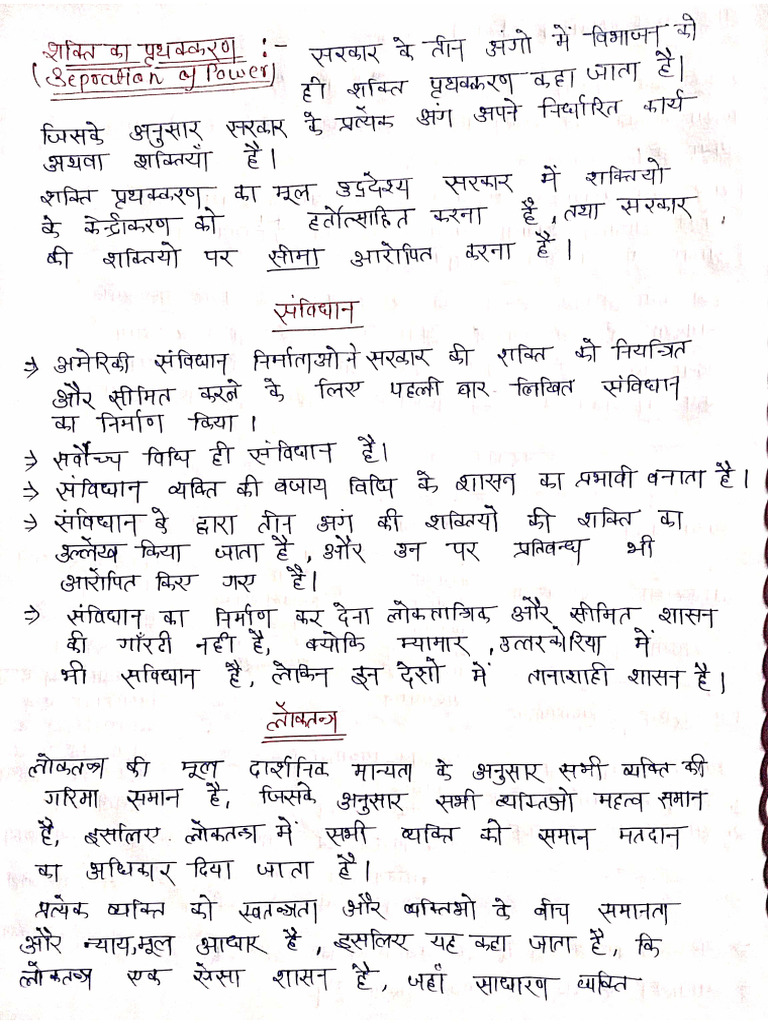 शक्ति का पृथक्करण :- सरकार के तीन अंगो में विभाजन को
(Sepration of Power) ही शक्ति पृथक्करण कहा जाता है।
जिसके अनुसार सरकार के प्रत्येक अंग अपने निर्धारित कार्य
अथवा शक्तियाँ है।
शक्ति प्रथक्करण का मूल उद्देश्य सरकार में शक्तियो
के केन्द्रीकरण को हतोत्साहित करना है, तथा सरकार
की शक्तियो पर सीमा आरोपित करना है।
संविधान
⇒ अमेरिकी संविधान निर्माताओ ने सरकार की शक्ति को नियन्त्रित
और सीमित करने के लिए पहली बार लिखित संविधान
का निर्माण किया।
⇒ सर्वोच्च विधि ही संविधान है।
⇒ संविधान व्यक्ति की बजाय विधि के शासन का प्रभावी बनाता है।
⇒ संविधान के द्वारा तीन अंग की शक्तियो की शक्ति का
उल्लेख किया जाता है, और उन पर प्रतिबन्ध भी
आरोपित किए गए है।
⇒ संविधान का निर्माण कर देना लोकतान्त्रिक और सीमित शासन
की गाँरटी नही है, क्योकि म्यामार, उत्तरकोरिया में
भी सविधान है, लेकिन इन देशो में तानाशाही शासन है।
लोकतन्त्र
लोकतन्त्र की मूल दार्शनिक मान्यता के अनुसार सभी व्यक्ति की
गरिमा समान है, जिसके अनुसार सभी व्यक्तिओ महत्व समान
है, इसलिए लोकतन्त्र में सभी व्यक्ति को समान मतदान
का अधिकार दिया जाता है।
प्रत्येक व्यक्ति को स्वतन्त्रता और व्यक्तिओ के बीच समानता
और न्याय, मूल आधार है, इसलिए यह कहा जाता है, कि
लोकतन्त्र एक ऐसा शासन है, जहाँ साधारण व्यक्ति